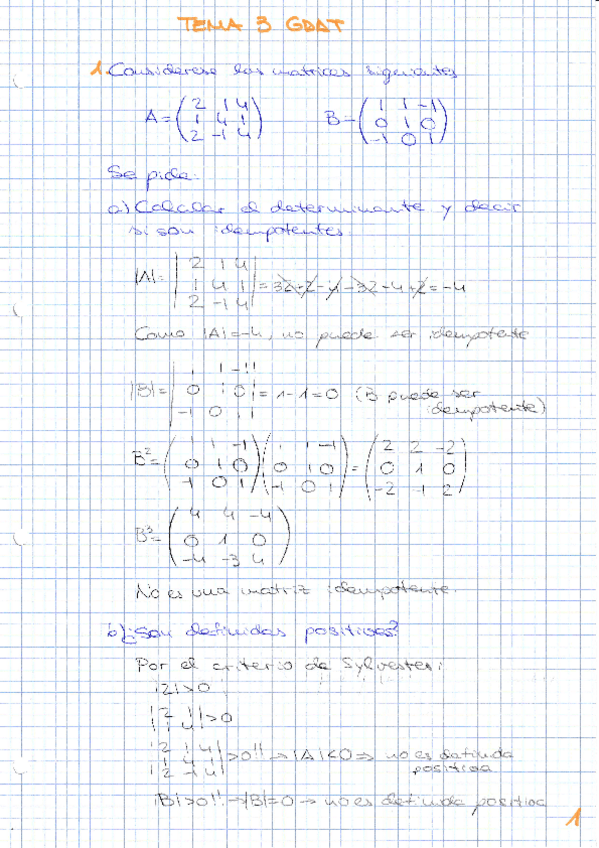 TEMA 3 GDAT
1. Considerese las matrices siguientes
A = ( 2 1 4 / 1 4 1 / 2 -1 4 ) B = ( 1 1 -1 / 0 1 0 / -1 0 1 )
Se pide:
a) Calcular el determinante y decir
si son idempotentes.
|A| = | 2 1 4 / 1 4 1 / 2 -1 4 | = 32+2-4-32-4+2 = -4
Como |A|=-4, no puede ser idempotente
|B| = | 1 1 -1 / 0 1 0 / -1 0 1 | = 1-1=0 (B puede ser
idempotente)
B² = ( 1 1 -1 / 0 1 0 / -1 0 1 ) ( 1 1 -1 / 0 1 0 / -1 0 1 ) = ( 2 2 -2 / 0 1 0 / -2 -1 2 )
B³ = ( 4 4 -4 / 0 1 0 / -4 -3 4 )
No es una matriz idempotente.
b) ¿Son definidas positivas?
Por el criterio de Sylvester:
|2|>0
| 2 1 / 1 4 | >0
| 2 1 4 / 1 4 1 / 2 -1 4 | >0!! → |A|<0 ⇒ no es definida
positiva
|B|>0!! → |B|=0 → no es definida positiva
1